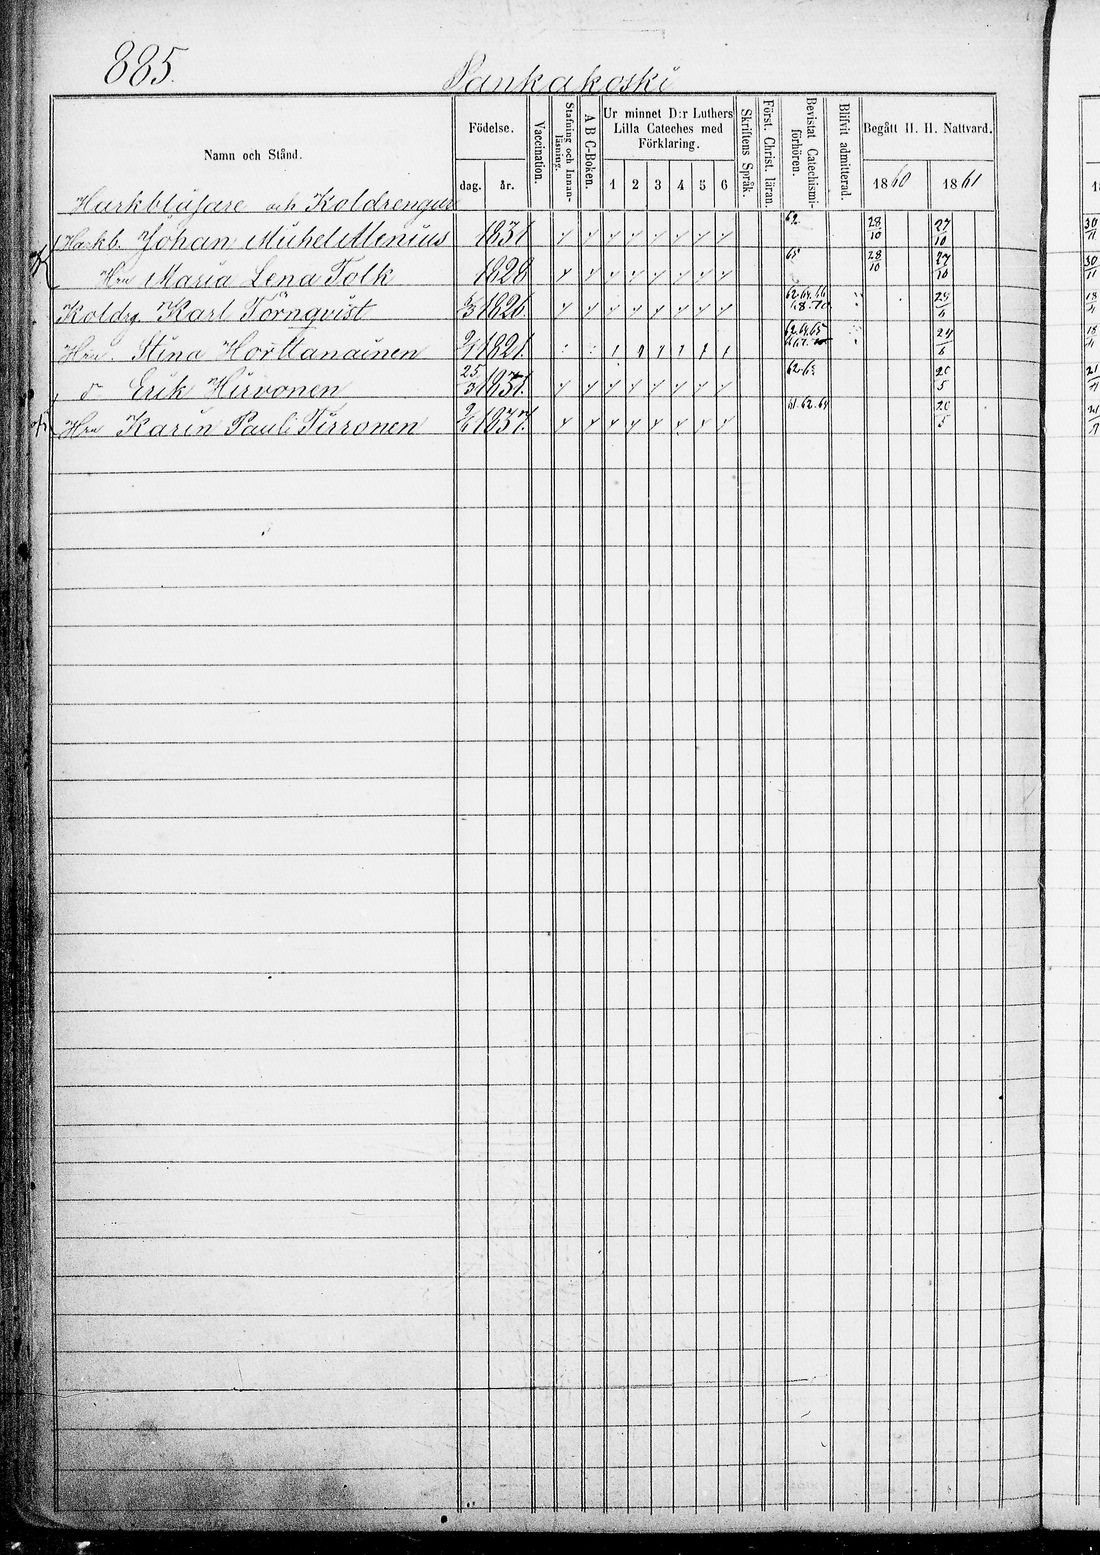 885.
Pankakoski
Namn och Stånd.
Födelse.
dag. år.
Vaccination.
Stafning och Innanläsning.
A B C-Boken.
Ur minnet D:r Luthers Lilla Cateches med Förklaring.
1 2 3 4 5 6
Skriftens Språk.
Först. Christ. läran.
Bevistat Catechismiförhören.
Blifvit admitterad.
Begått H. H. Nattvard.
1860 1861
Harkblåsare och Koldrengar
Harkb. Johan Mikel Alenius 1831 62. 28/10 27/10 30/11
Hru Maria Lena Tolk 1828 65 28/10 27/10 30/11
Koldrg Karl Törnqvist 1826. 24/6 18/4
Hru. Stina Horttanainen 1821. 62.64.65 24/6 18/4
d Erik Hirvonen 25/3 1831. 62.65 20/5
Hru Karin Paulsd. Tirronen 1837. 61.62.64 20/5